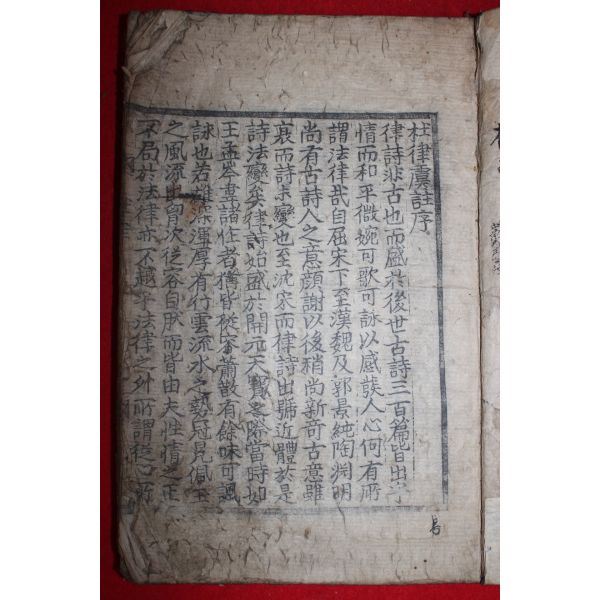 杜律虞註序
律詩非古也而盛於後世古詩三百篇皆出於
情而和平微婉可歌可詠以感發人心何有所
謂法律哉自屈宋下至漢魏及郭景純陶淵明
尚有古詩人之意顔謝以後稍尚新奇古意雖
衰而詩未變也至沈宋而律詩出號近體於是
詩法變矣律詩始盛於開元天寶之際當時如
王孟岑韋諸作者猶皆從容蕭散有餘味可諷
詠也若雄深渾厚有行雲流水之勢冠冕佩玉
之風流出胷次從容自肰而皆由夫性情之正
不局於法律亦不越乎法律之外所謂從心所